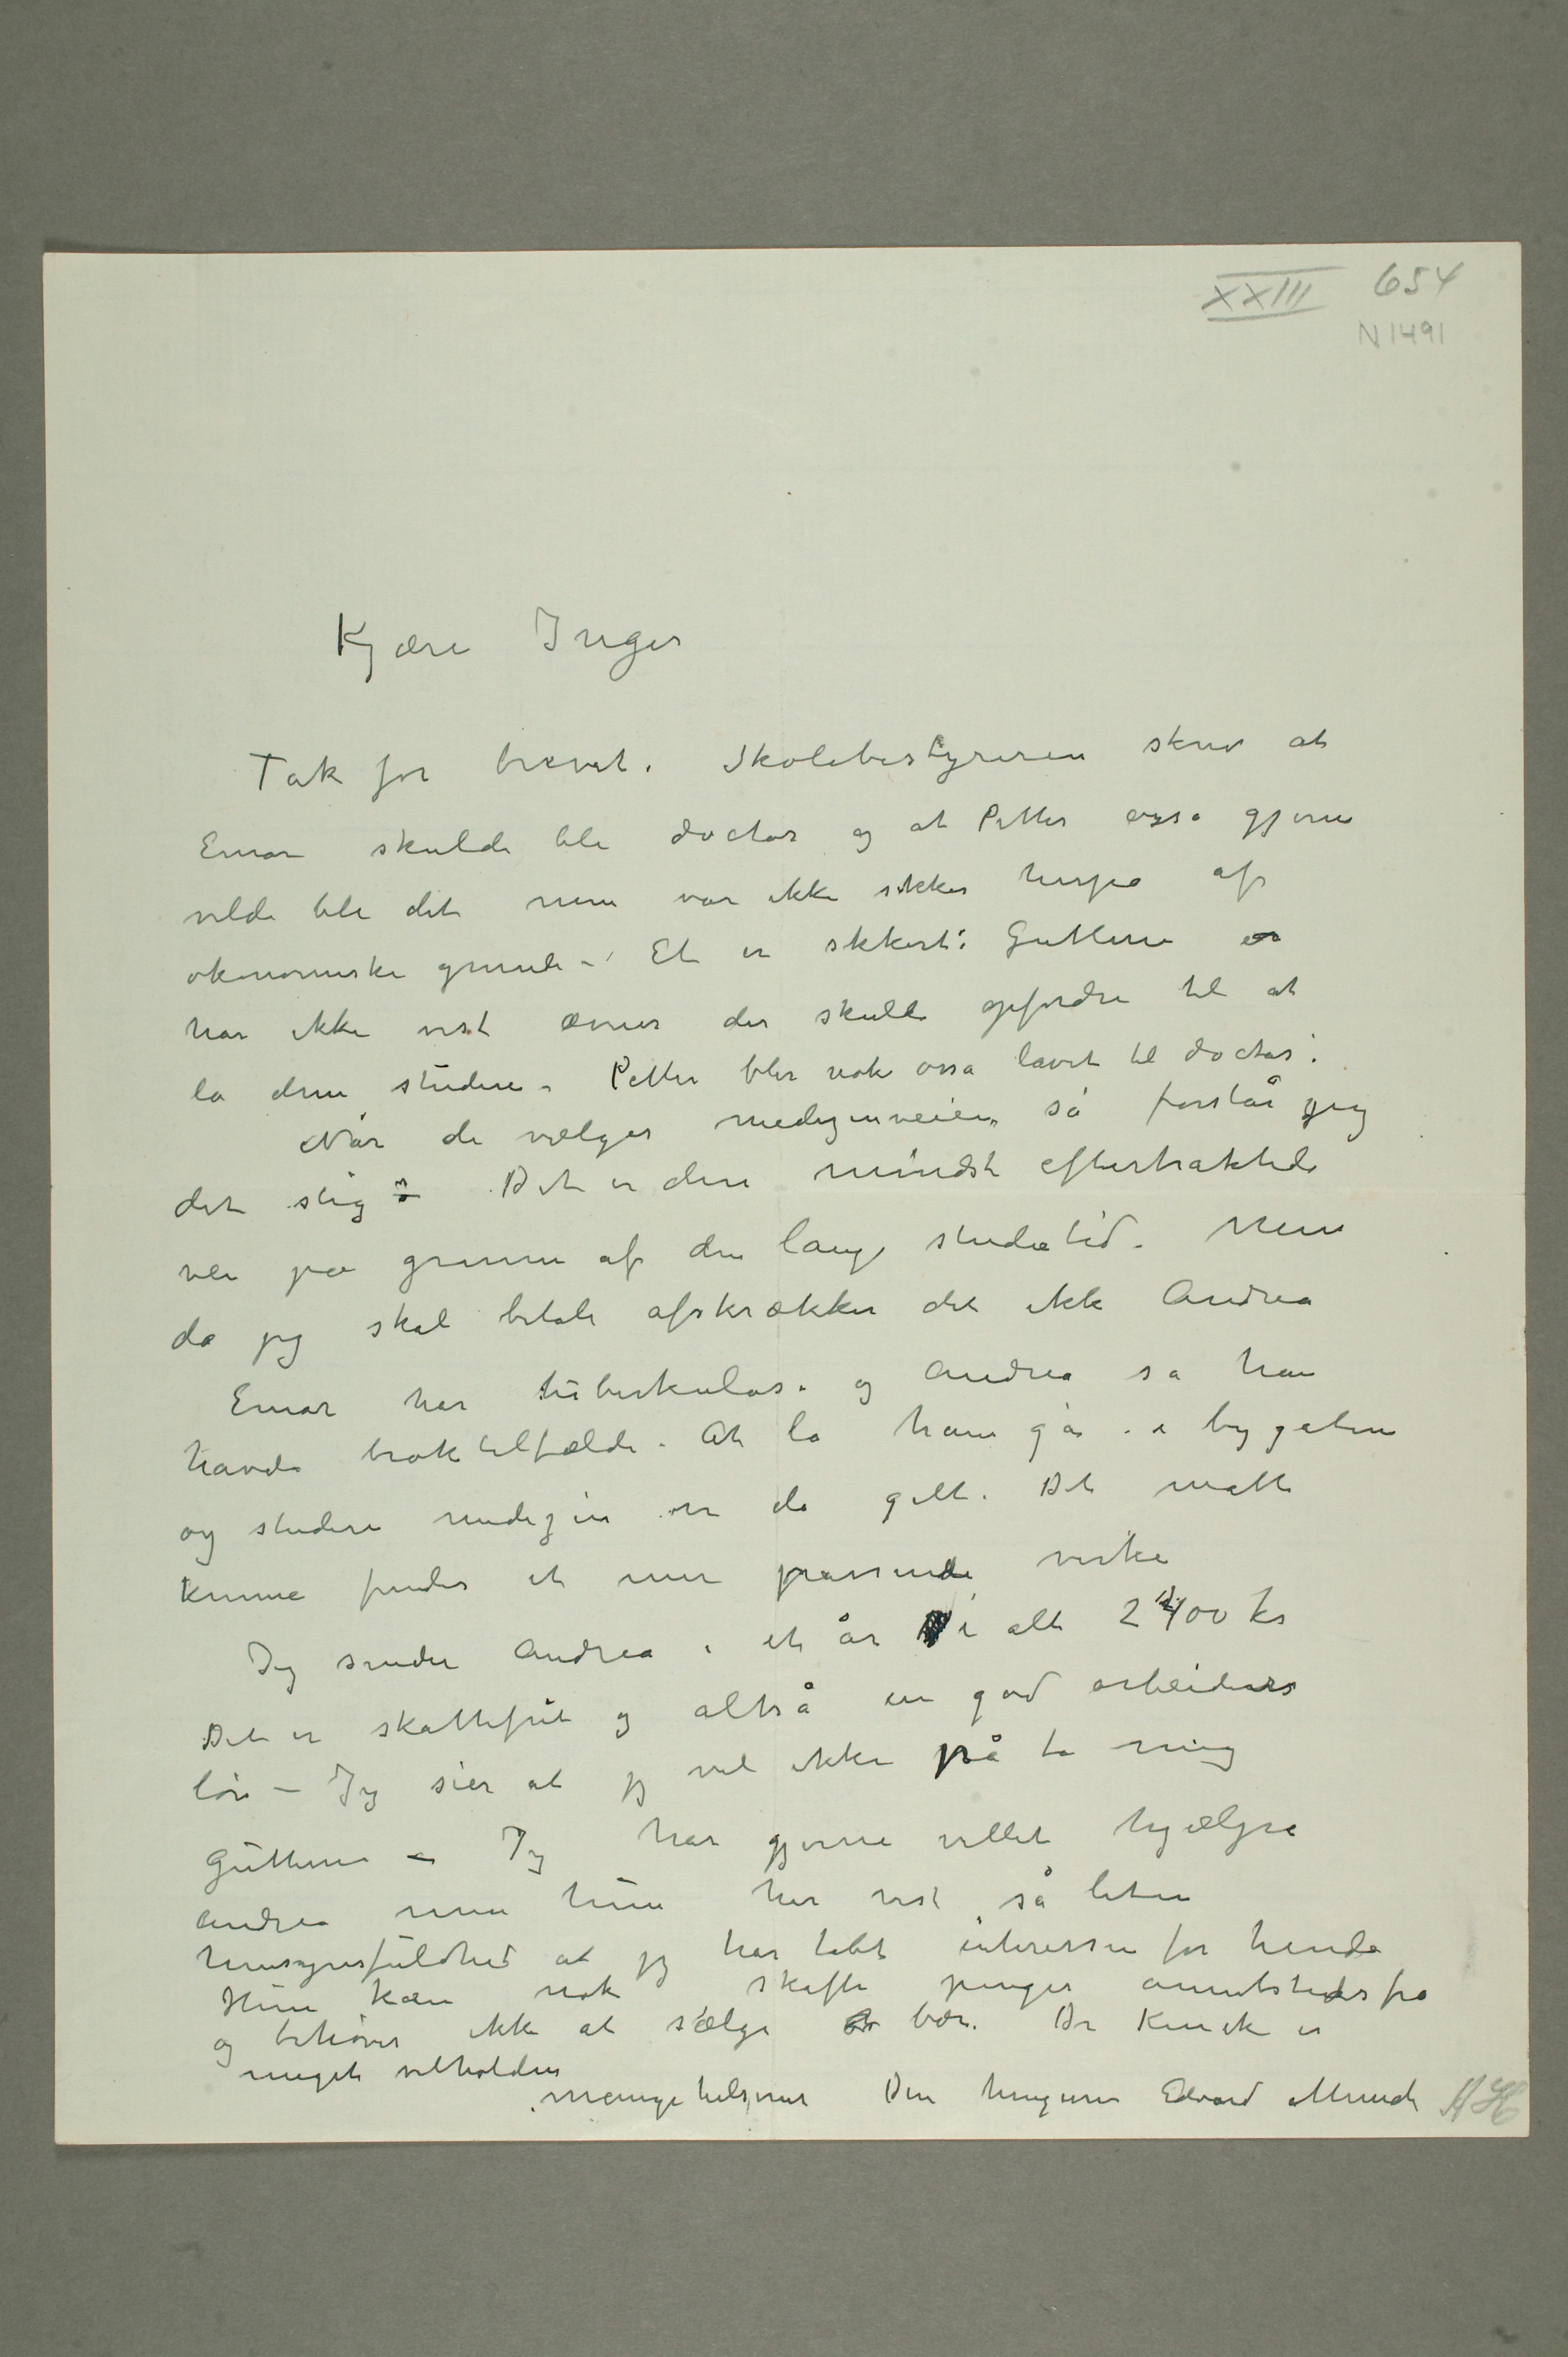 XXIII 654
N 1491
Kjære Inger
Tak for brevet. Skolebestyreren skrev at
Einar skulde bli doctor og at Petter også gjerne
vilde bli det men var ikke sikker herpå af
økonomiske grunde – Et er sikkert: Guttene er
har ikke vist ævner der skulde opfordre til at
la dem studere – Petter blir nok osså lavet til doctor:
Når de vælger medezinveien så forstår jeg
det slig: Det er den mindst eftertraktede
vei på grunn af den lange studietid. Men
da jeg skal betale afskrækker det ikke Andrea
Einar har tuberkulose og Andrea sa han
havde braktilfælde. At la ham gå i bygaten
og studere medezin er da galt. Det måtte
kunne findes et mer passende virke
Jeg sender Andrea i et år i alt 2400 kr
Det er skattefrit og altså en god arbeiders
løn – Jeg sier at jeg vil ikke på ta mig
Guttene – Jeg har gjerne villet hjælpe
Andrea men hun har vist så liten
hensynsfuldhed at jeg har tabt interessen for hende
Hun kan nok skaffe penger annetstedsfra
og behøver ikke at sælge bær. Dr Kinck er
meget velholden
Mange hilsener Din hengivne Edvard Munch